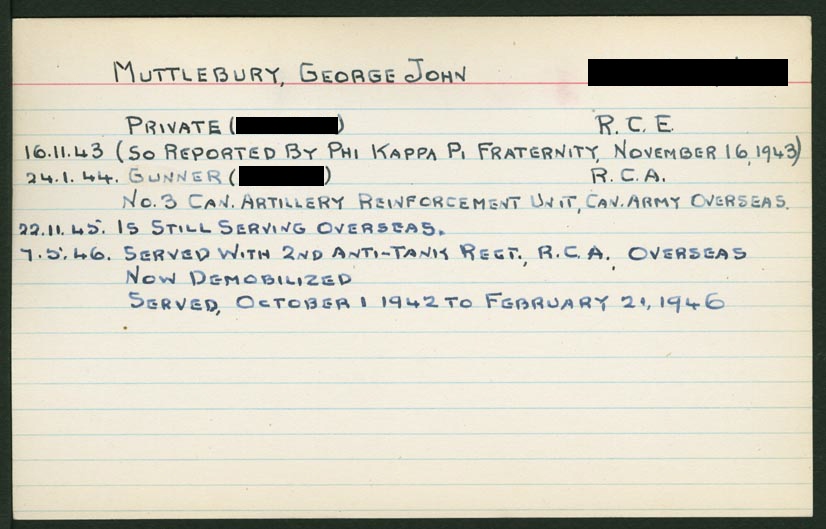 MUTTLEBURY, GEORGE JOHN
PRIVATE ( ) R.C.E.
16.11.43 (SO REPORTED BY PHI KAPPA PI FRATERNITY, NOVEMBER 16, 1943)
24.1.44. GUNNER ( ) R.C.A.
NO. 3 CAN. ARTILLERY REINFORCEMENT UNIT, CAN. ARMY OVERSEAS.
22.11.45. IS STILL SERVING OVERSEAS.
7.5.46. SERVED WITH 2ND ANTI-TANK REGT., R.C.A. OVERSEAS
NOW DEMOBILIZED
SERVED, OCTOBER 1 1942 TO FEBRUARY 21, 1946